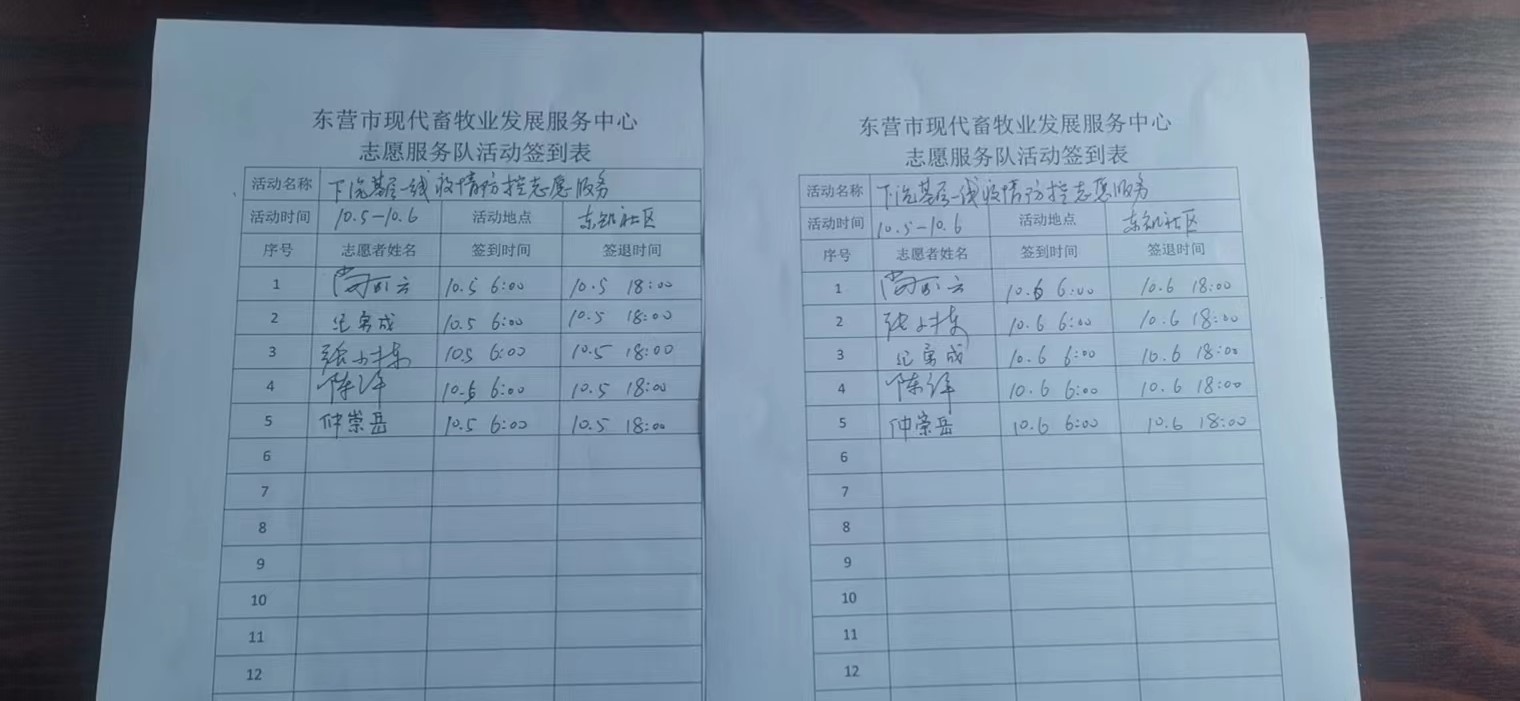 东营市现代畜牧业发展服务中心
志愿服务队活动签到表
活动名称 下沉基层一线疫情防控志愿服务
活动时间 10.5-10.6 活动地点 社区
序号 志愿者姓名 签到时间 签退时间
1 10.5 6:00 10.5 18:00
2 纪勇成 10.5 6:00 10.5 18:00
3 张 10.5 6:00 10.5 18:00
4 陈洋 10.5 6:00 10.5 18:00
5 仲崇岳 10.5 6:00 10.5 18:00
6
7
8
9
10
11
12
东营市现代畜牧业发展服务中心
志愿服务队活动签到表
活动名称 下沉基层一线疫情防控志愿服务
活动时间 10.5-10.6 活动地点 社区
序号 志愿者姓名 签到时间 签退时间
1 10.6 6:00 10.6 18:00
2 张 10.6 6:00 10.6 18:00
3 纪勇成 10.6 6:00 10.6 18:00
4 陈洋 10.6 6:00 10.6 18:00
5 仲崇岳 10.6 6:00 10.6 18:00
6
7
8
9
10
11
12